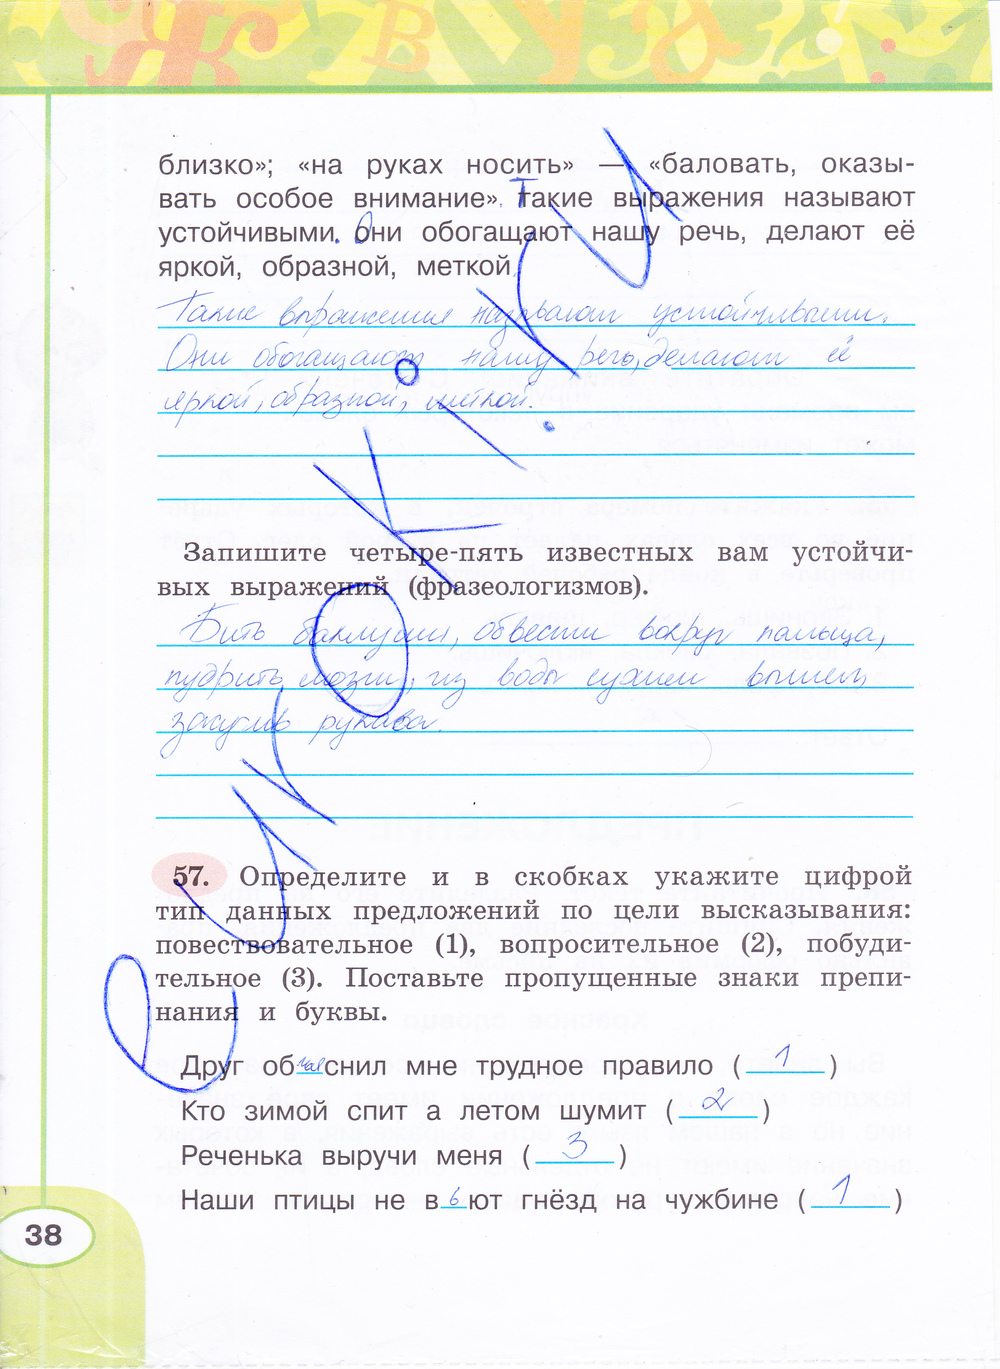 близко»; «на руках носить» — «баловать, оказы-
вать особое внимание». Такие выражения называют
устойчивыми. Они обогащают нашу речь, делают её
яркой, образной, меткой.
Такие выражения называют устойчивыми.
Они обогащают нашу речь, делают её
яркой, образной, меткой.
Запишите четыре-пять известных вам устойчи-
вых выражений (фразеологизмов).
Бить баклуши, обвести вокруг пальца,
пудрить мозги, из воды сухим вышел,
засучив рукава.
57. Определите и в скобках укажите цифрой
тип данных предложений по цели высказывания:
повествовательное (1), вопросительное (2), побуди-
тельное (3). Поставьте пропущенные знаки препи-
нания и буквы.
Друг об снил мне трудное правило ( 1 )
Кто зимой спит а летом шумит ( 2 )
Реченька выручи меня ( 3 )
Наши птицы не вьют гнёзд на чужбине ( 1 )
38